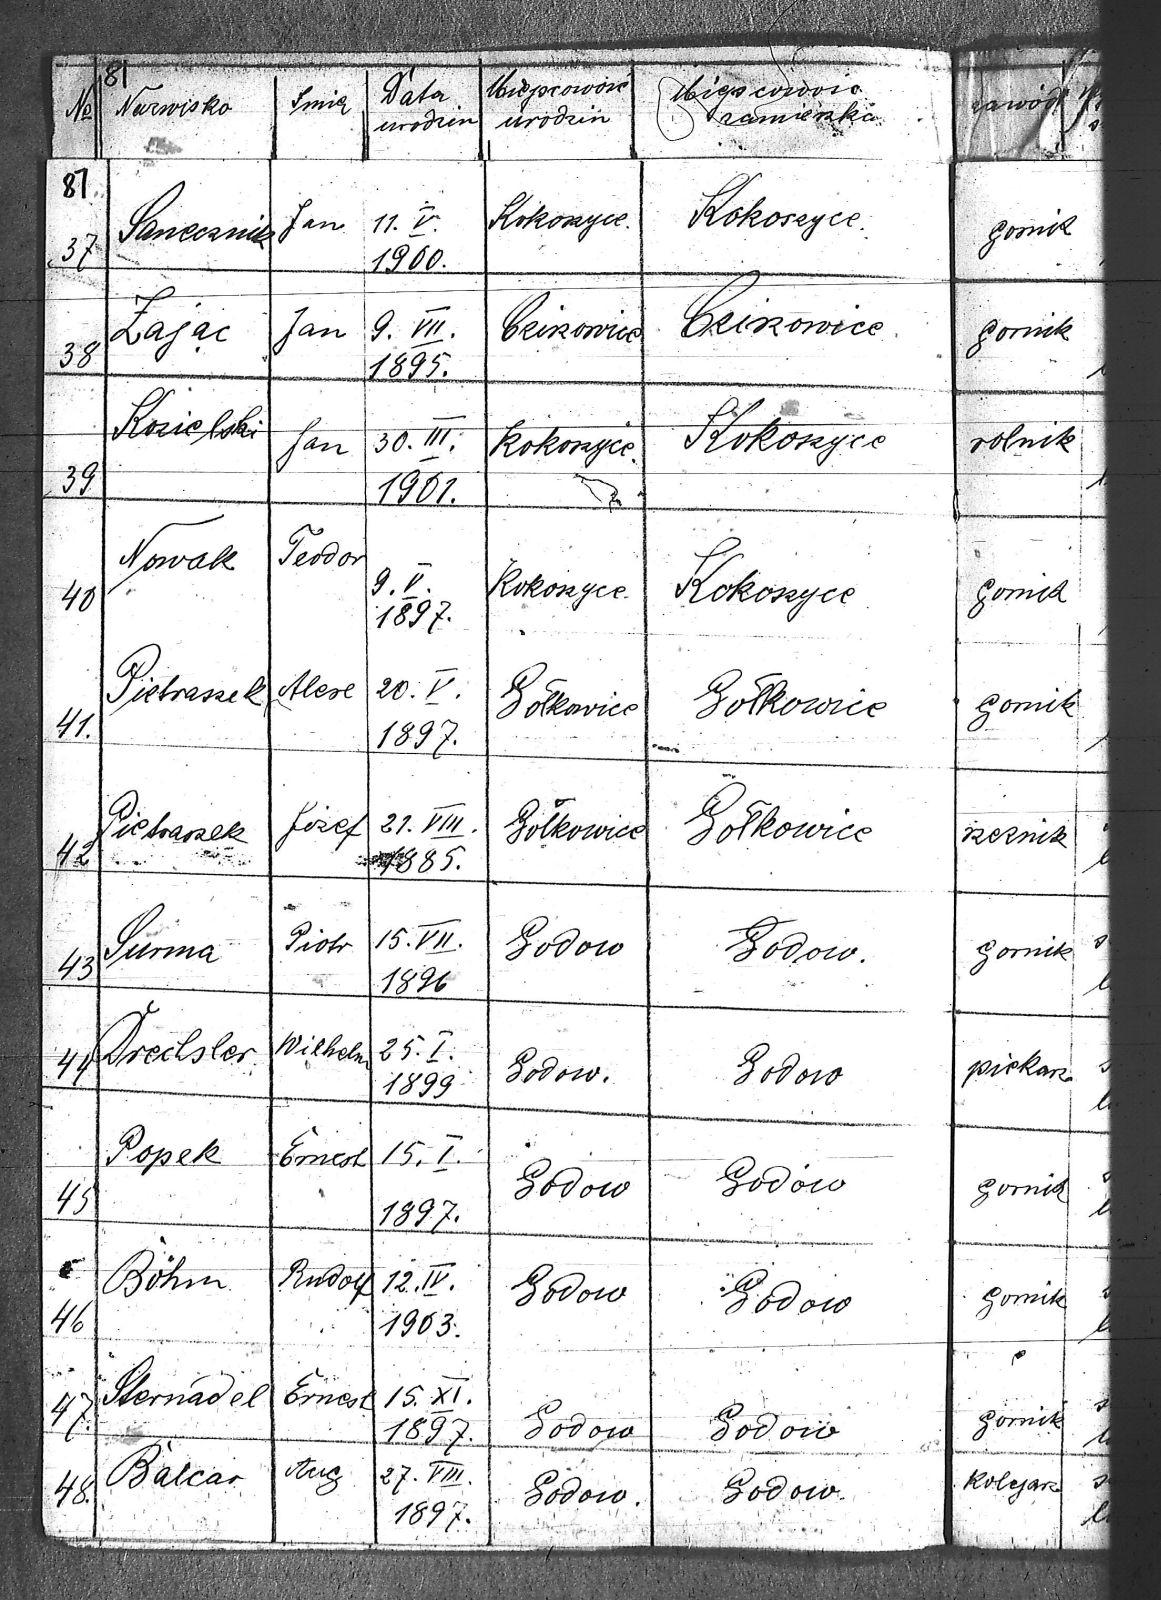 81
№ Nazwisko Imię Data urodzin Miejscowość urodzin Miejscowość zamieszka zawód
81
37 Sanecznik Jan 11. V. 1900. Kokoszyce. Kokoszyce. gornik
38 Zając Jan 9. VII. 1895. Czirowice Czirowice. gornik
39 Kozielski Jan 30. III. 1901. Kokoszyce. Kokoszyce rolnik
40 Nowak Teodor 9. V. 1897. Kokoszyce. Kokoszyce gornik
41. Pietraszek Alexe 20. V. 1897. Gołkowice Gołkowice gornik
42 Pietraszek Józef 21. VIII. 1885. Gołkowice Gołkowice rzeznik
43 Surma Piotr 15. VII. 1896 Godow Godow. gornik
44 Drechsler Wilhelm 25. I. 1899 Godow. Godow piekarz
45 Popek Ernest 15. I. 1897. Godow Godow gornik
46 Böhm Rudolf 12. IV. 1903. Godow Godow gornik
47. Sternadel Ernest 15. XI. 1897. Godow Godow gornik
48. Balcar Aug 27. VIII. 1897. Godow. Godow. kolejarz